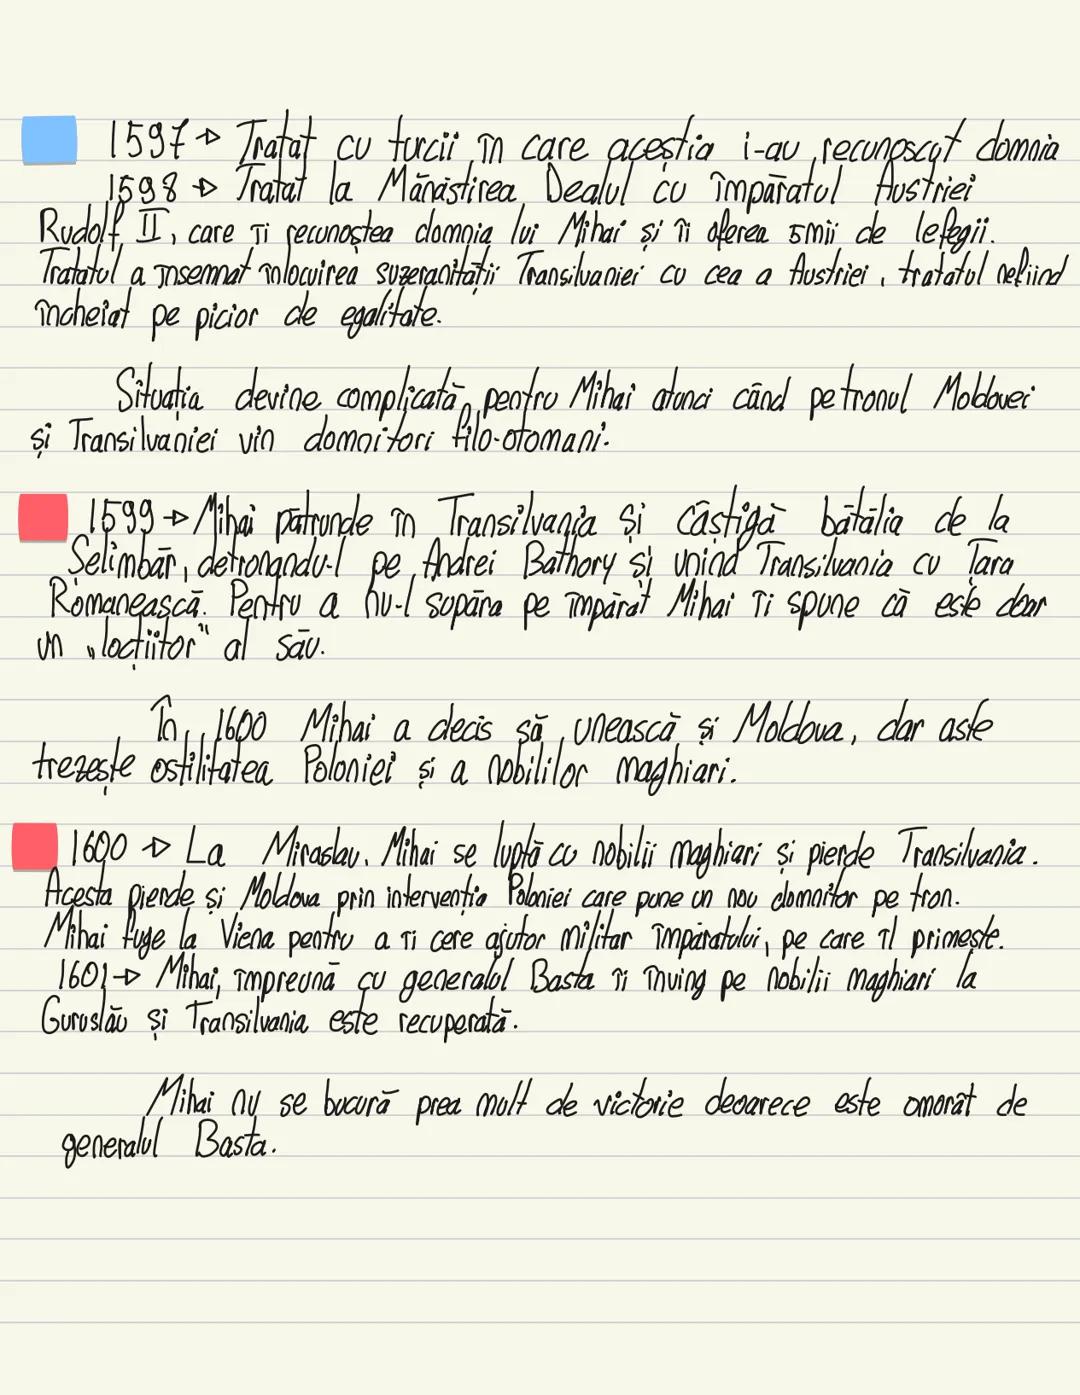 1597 → Tratat cu turcii în care aceștia i-au recunoscut domnia
1598 → Tratat la Mănăstirea Dealul cu împăratul Austriei
Rudolf II, care îi recunoștea domnia lui Mihai și îi oferea 5mii de lefegii.
Tratatul a însemnat înlocuirea suzeranității Transilvaniei cu cea a Austriei, tratatul nefiind
încheiat pe picior de egalitate.
Situația devine complicată pentru Mihai atunci când pe tronul Moldovei
și Transilvaniei vin domnitori filo-otomani.
1599 → Mihai pătrunde în Transilvania și câștigă bătălia de la
Șelimbăr, detronandu-l pe Andrei Bathory și unind Transilvania cu Țara
Românească. Pentru a nu-l supăra pe împărat Mihai îi spune că este doar
un „locțiitor" al său.
În 1600 Mihai a decis să unească și Moldova, dar aste
trezește ostilitatea Poloniei și a nobililor maghiari.
1600 → La Miraslau, Mihai se luptă cu nobilii maghiari și pierde Transilvania.
Acesta pierde și Moldova prin intervenția Poloniei care pune un nou domnitor pe tron.
Mihai fuge la Viena pentru a îi cere ajutor militar împăratului, pe care îl primește.
1601 → Mihai, împreună cu generalul Basta îi înving pe nobilii maghiari la
Guruslău și Transilvania este recuperată.
Mihai nu se bucură prea mult de victorie deoarece este omorât de
generalul Basta.